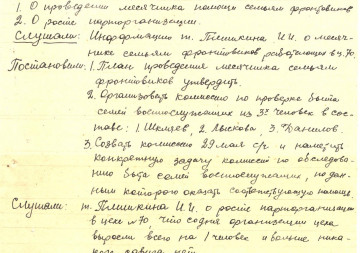 1. О проведении месячника помощи семьям фронтовиков
2. О росте парторганизации.
Слушали: Информацию т. Плишкина И.И. о месяч-
нике семьям фронтовиков работающих в ц. 70.
Постановили: 1. План проведения месячника семьям
фронтовиков утвердить.
2. Организовать комиссию по проверке быта
семей военнослужащих из 3х человек в сос-
таве: 1. Шкляев, 2. Лыскова, 3. Данилов.
3. Созвать комиссию 29 мая с/г и наметить
конкретную задачу комиссий по обследова-
нию быта семей военнослужащих, по дан-
ным которого оказать соответствующую помощь.
Слушали: т. Плишкина И.И. о росте парторганизации
в цехе №70, что
выросли всего на 1 человек и больше ника-